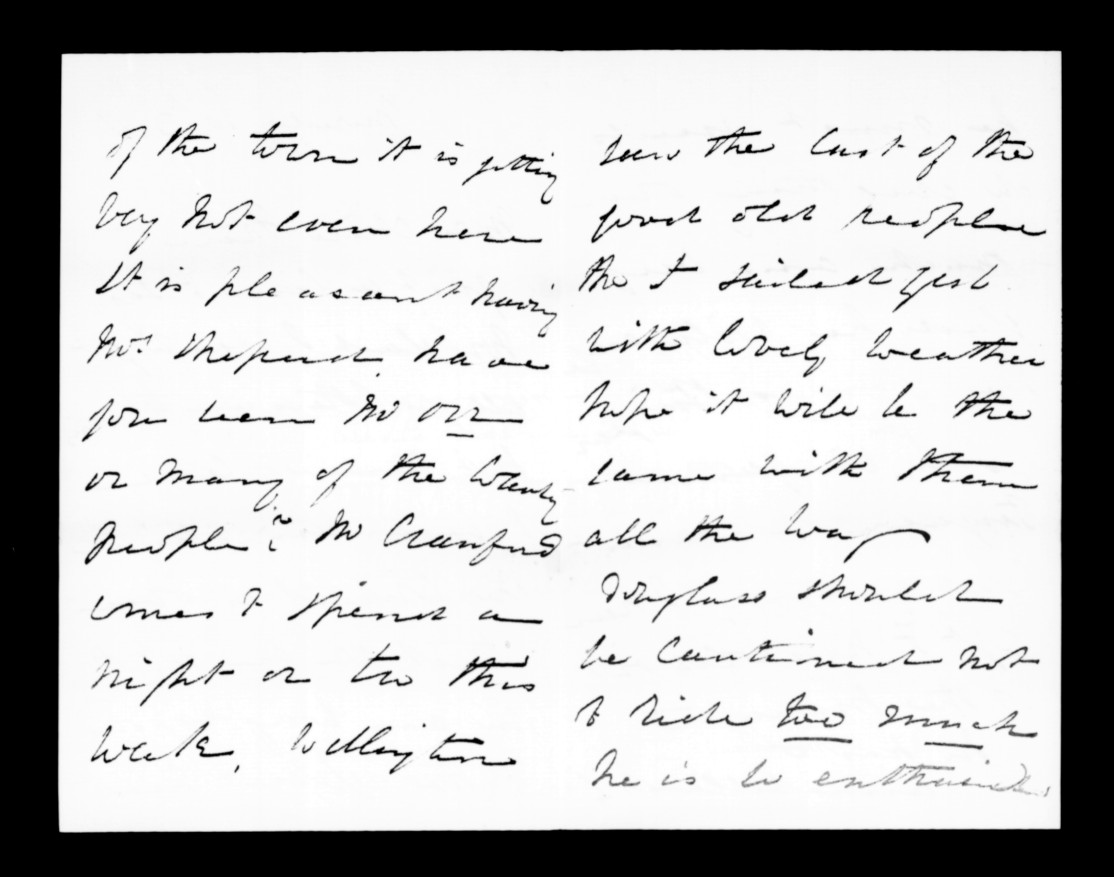 of the town it is getting
very hot even here
It is pleasant having
Mrs Shepherd. have
you seen Mr Orr
or many of the County
People? Mr Crawford
comes to spend a
night or two this
week, Wellington
sees the last of the
good old people
the J sailed yest
with lovely weather
hope it will be the
same with them
all the way
Douglass should
be cautioned not
to ride too much
he is so enthusiastic